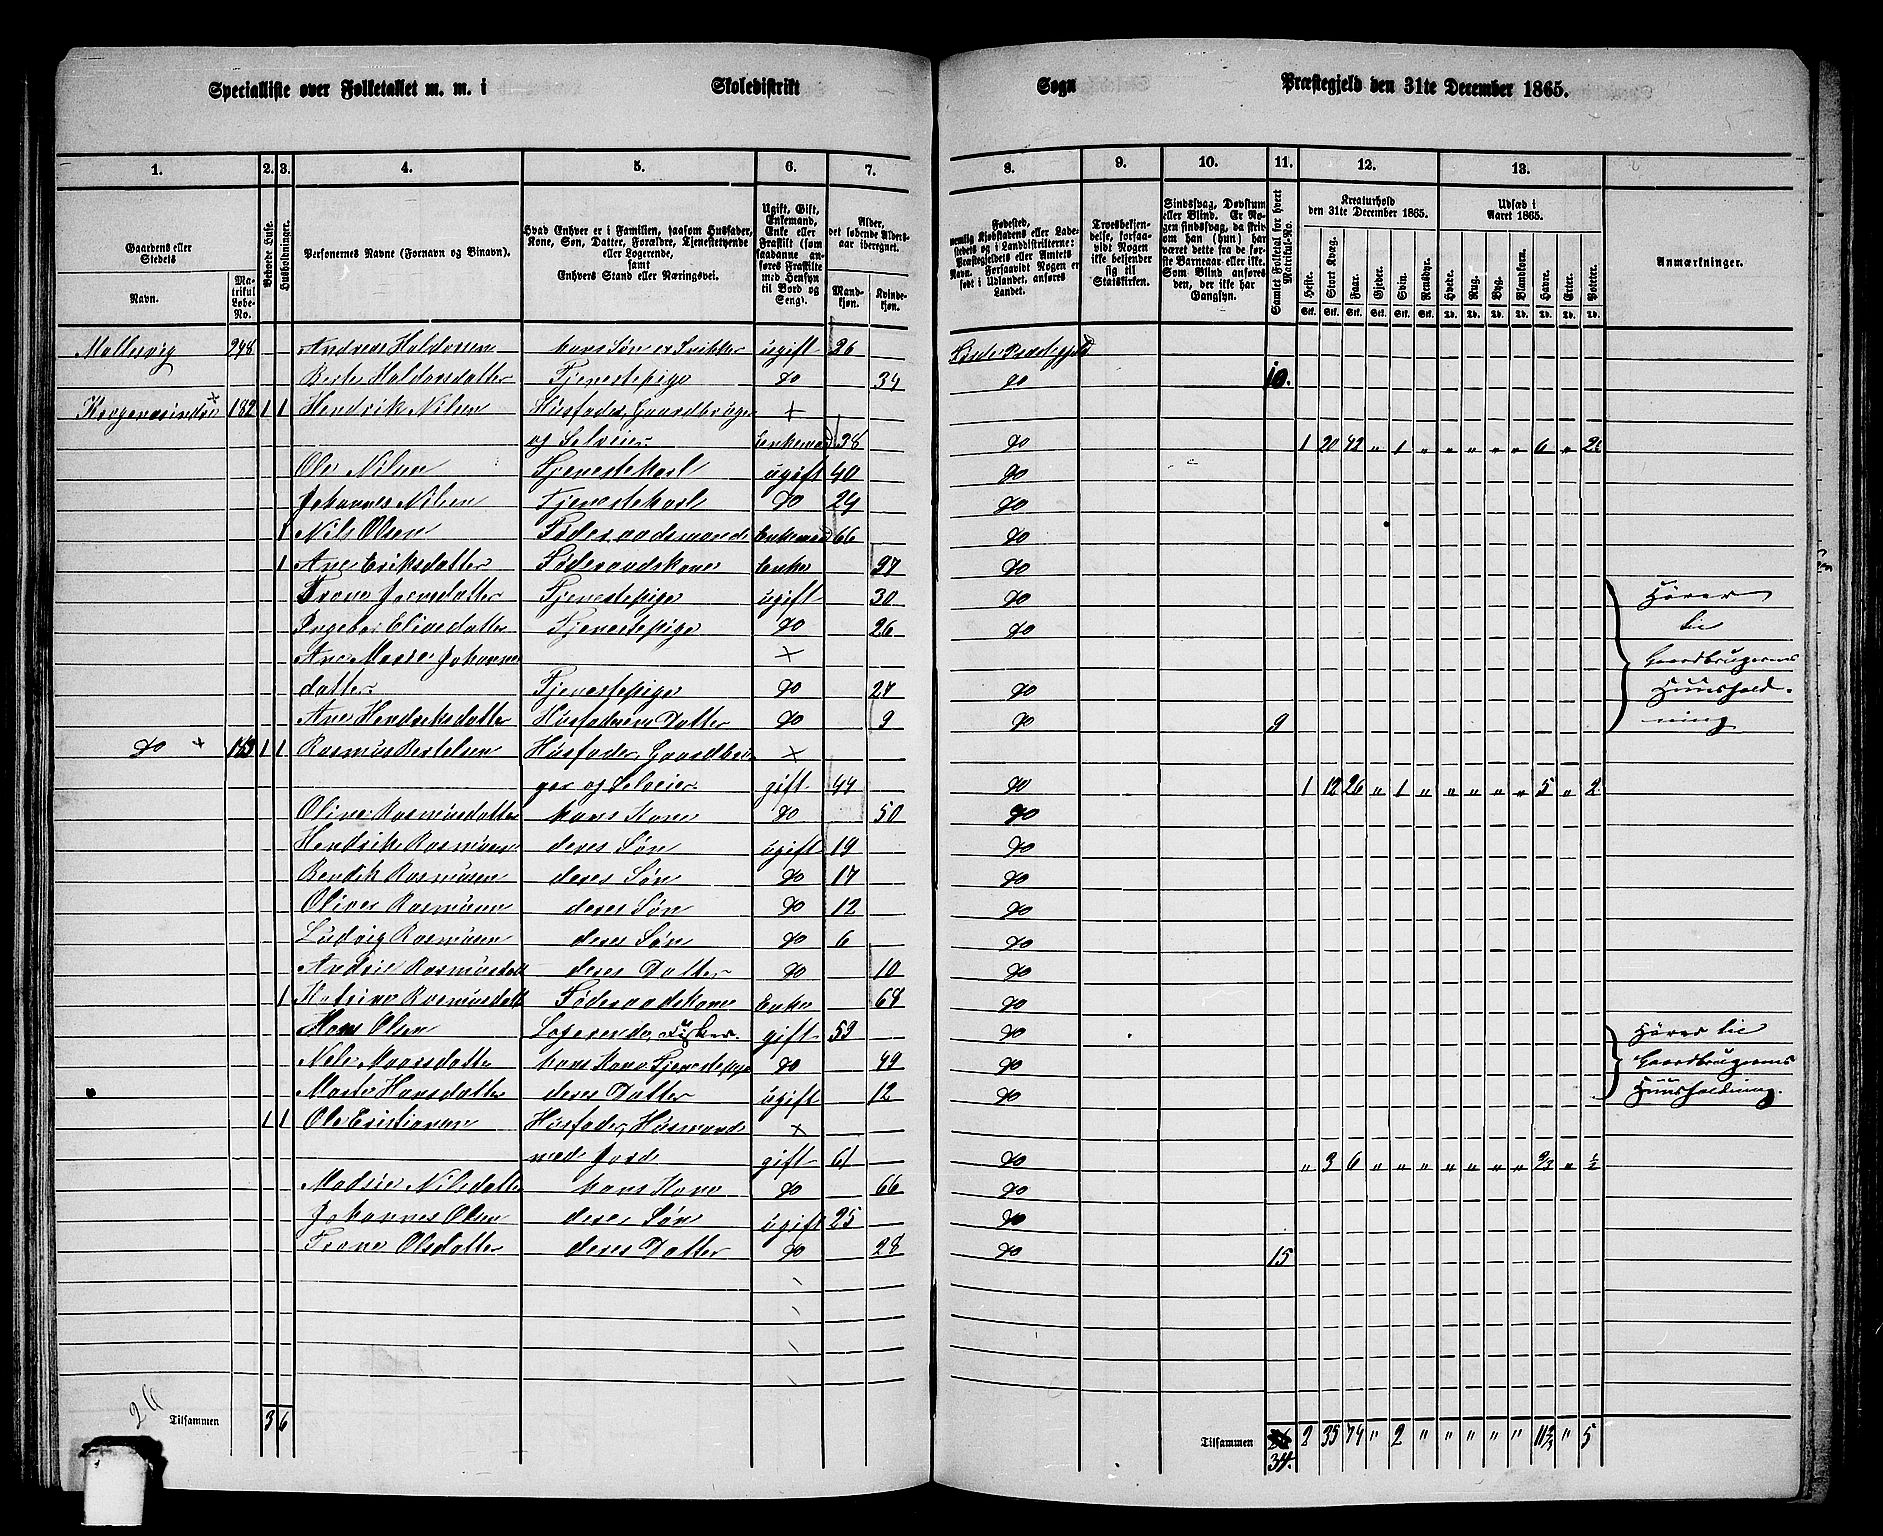 Specialliste over Folketallet m. m. i Skoledistrikt Sogn Præstegjeld den 31te December 1865.
1. 2. 3. 4. 5. 6. 7. 8. 9. 10. 11. 12. 13.
Gaardens eller Stedets
Navn.
Matrikul Løbe-No.
Beboede Huse.
Husholdninger.
Personernes Navne (Fornavn og Binavn).
Hvad Enhver er i Familien, saasom Husfader, Kone, Søn, Datter, Forældre, Tjenestetyende eller Logerende, samt Enhvers Stand eller Næringsvei.
Ugift, Gift, Enkemand, Enke eller Fraskilt (som saadanne anføres Fraskilte med Hensyn til Bord og Seng).
Alder, det løbende Aldersaar iberegnet.
Mandkjøn. Kvindekjøn.
Fødested, nemlig Kjøbstadens eller Ladestedets og i Landdistrikterne: Præstegjeldets eller Amtets Navn. Forsaavidt Nogen er født i Udlandet, anføres Landet.
Troesbekjendelse, forsaavidt Nogen ikke bekjender sig til Statskirken.
Sindssvag, Døvstum eller Blind. Er Nogen sindssvag, da skrives om han (hun) har været dette fra de første Barneaar eller ikke. Som Blind anføres den, der ikke har Gangsyn.
Samlet Folketal for hvert Matrikul-No.
Kreaturhold den 31te December 1865.
Heste. Stort Kvæg. Faar. Gjeder. Svin. Rensdyr.
Udsæd i Aaret 1865.
Hvede. Rug. Byg. Blandkorn. Havre. Erter. Poteter.
Stk. Stk. Stk. Stk. Stk. Stk. Td. Td. Td. Td. Td. Td. Td.
Anmærkninger.
248 Andreas Haldorsen hans Søn er Snikker ugift 26
Berte Haldorsdatter Tjenestepige do 34 do 10.
182 1 1 Hendrik Nilsen Husfader, Gaardbruger +
og Selveier Enkemand 38 do 1 20 42 " 1 " " " " " 6 " 2½
Ole Nilsen Tjenestekarl ugift 40 do
Johannes Nilsen Tjenestekarl do 24 do
1 Nils Olsen Føderaadsmand Enkemand 66 do
1 Ane Eriksdatter Føderaadskone Enke do
Jensdatter Tjenestepige ugift 30 do Hører
Tjenestepige do 26 do til
Ane Marie Johannes + Gaardbrugerens
datter Tjenestepige do 27 do Huushold-
Ane Hendriksdatter Husfaderens Datter do 9 do 9 ning
do + 183 1 1 Rasmus Bertelsen Husfader, Gaardbru +
ger og Selveier gift 44 do 1 12 26 " 1 " " " " " 5 " 2
Oline Rasmusdatter hans Kone do 50 do
Hendrik Rasmusen deres Søn ugift 19 do
Bendik Rasmusen deres Søn do 17 do
Oliver Rasmusen deres Søn do 12 do
Ludvig Rasmusen deres Søn do 6 do
Rasmusdatt deres Datter do 10 do
1 Katrine Rasmusdatt Føderaadskone Enke 68 do
Hans Olsen Logerende, Fisker gift 53 do Hører til
hans Kone Tjenestepige do 49 do Gaardbrugerens
Marte Hansdatter deres Datter ugift 12 do Huusholdning.
1 1 Ole Cristiansen Husfader, Husmand +
med Jord gift 61 do " 3 6 " " " " " " " 2/3 " ½
Nilsdatter hans Kone do 66 do
Johannes Olsen deres Søn ugift 25 do
Olsdatter deres Datter do 28 do 15
26
Tilsammen 3 6
Tilsammen 34. 2 35 74 " 2 " " " " " 11 2/3 " 5